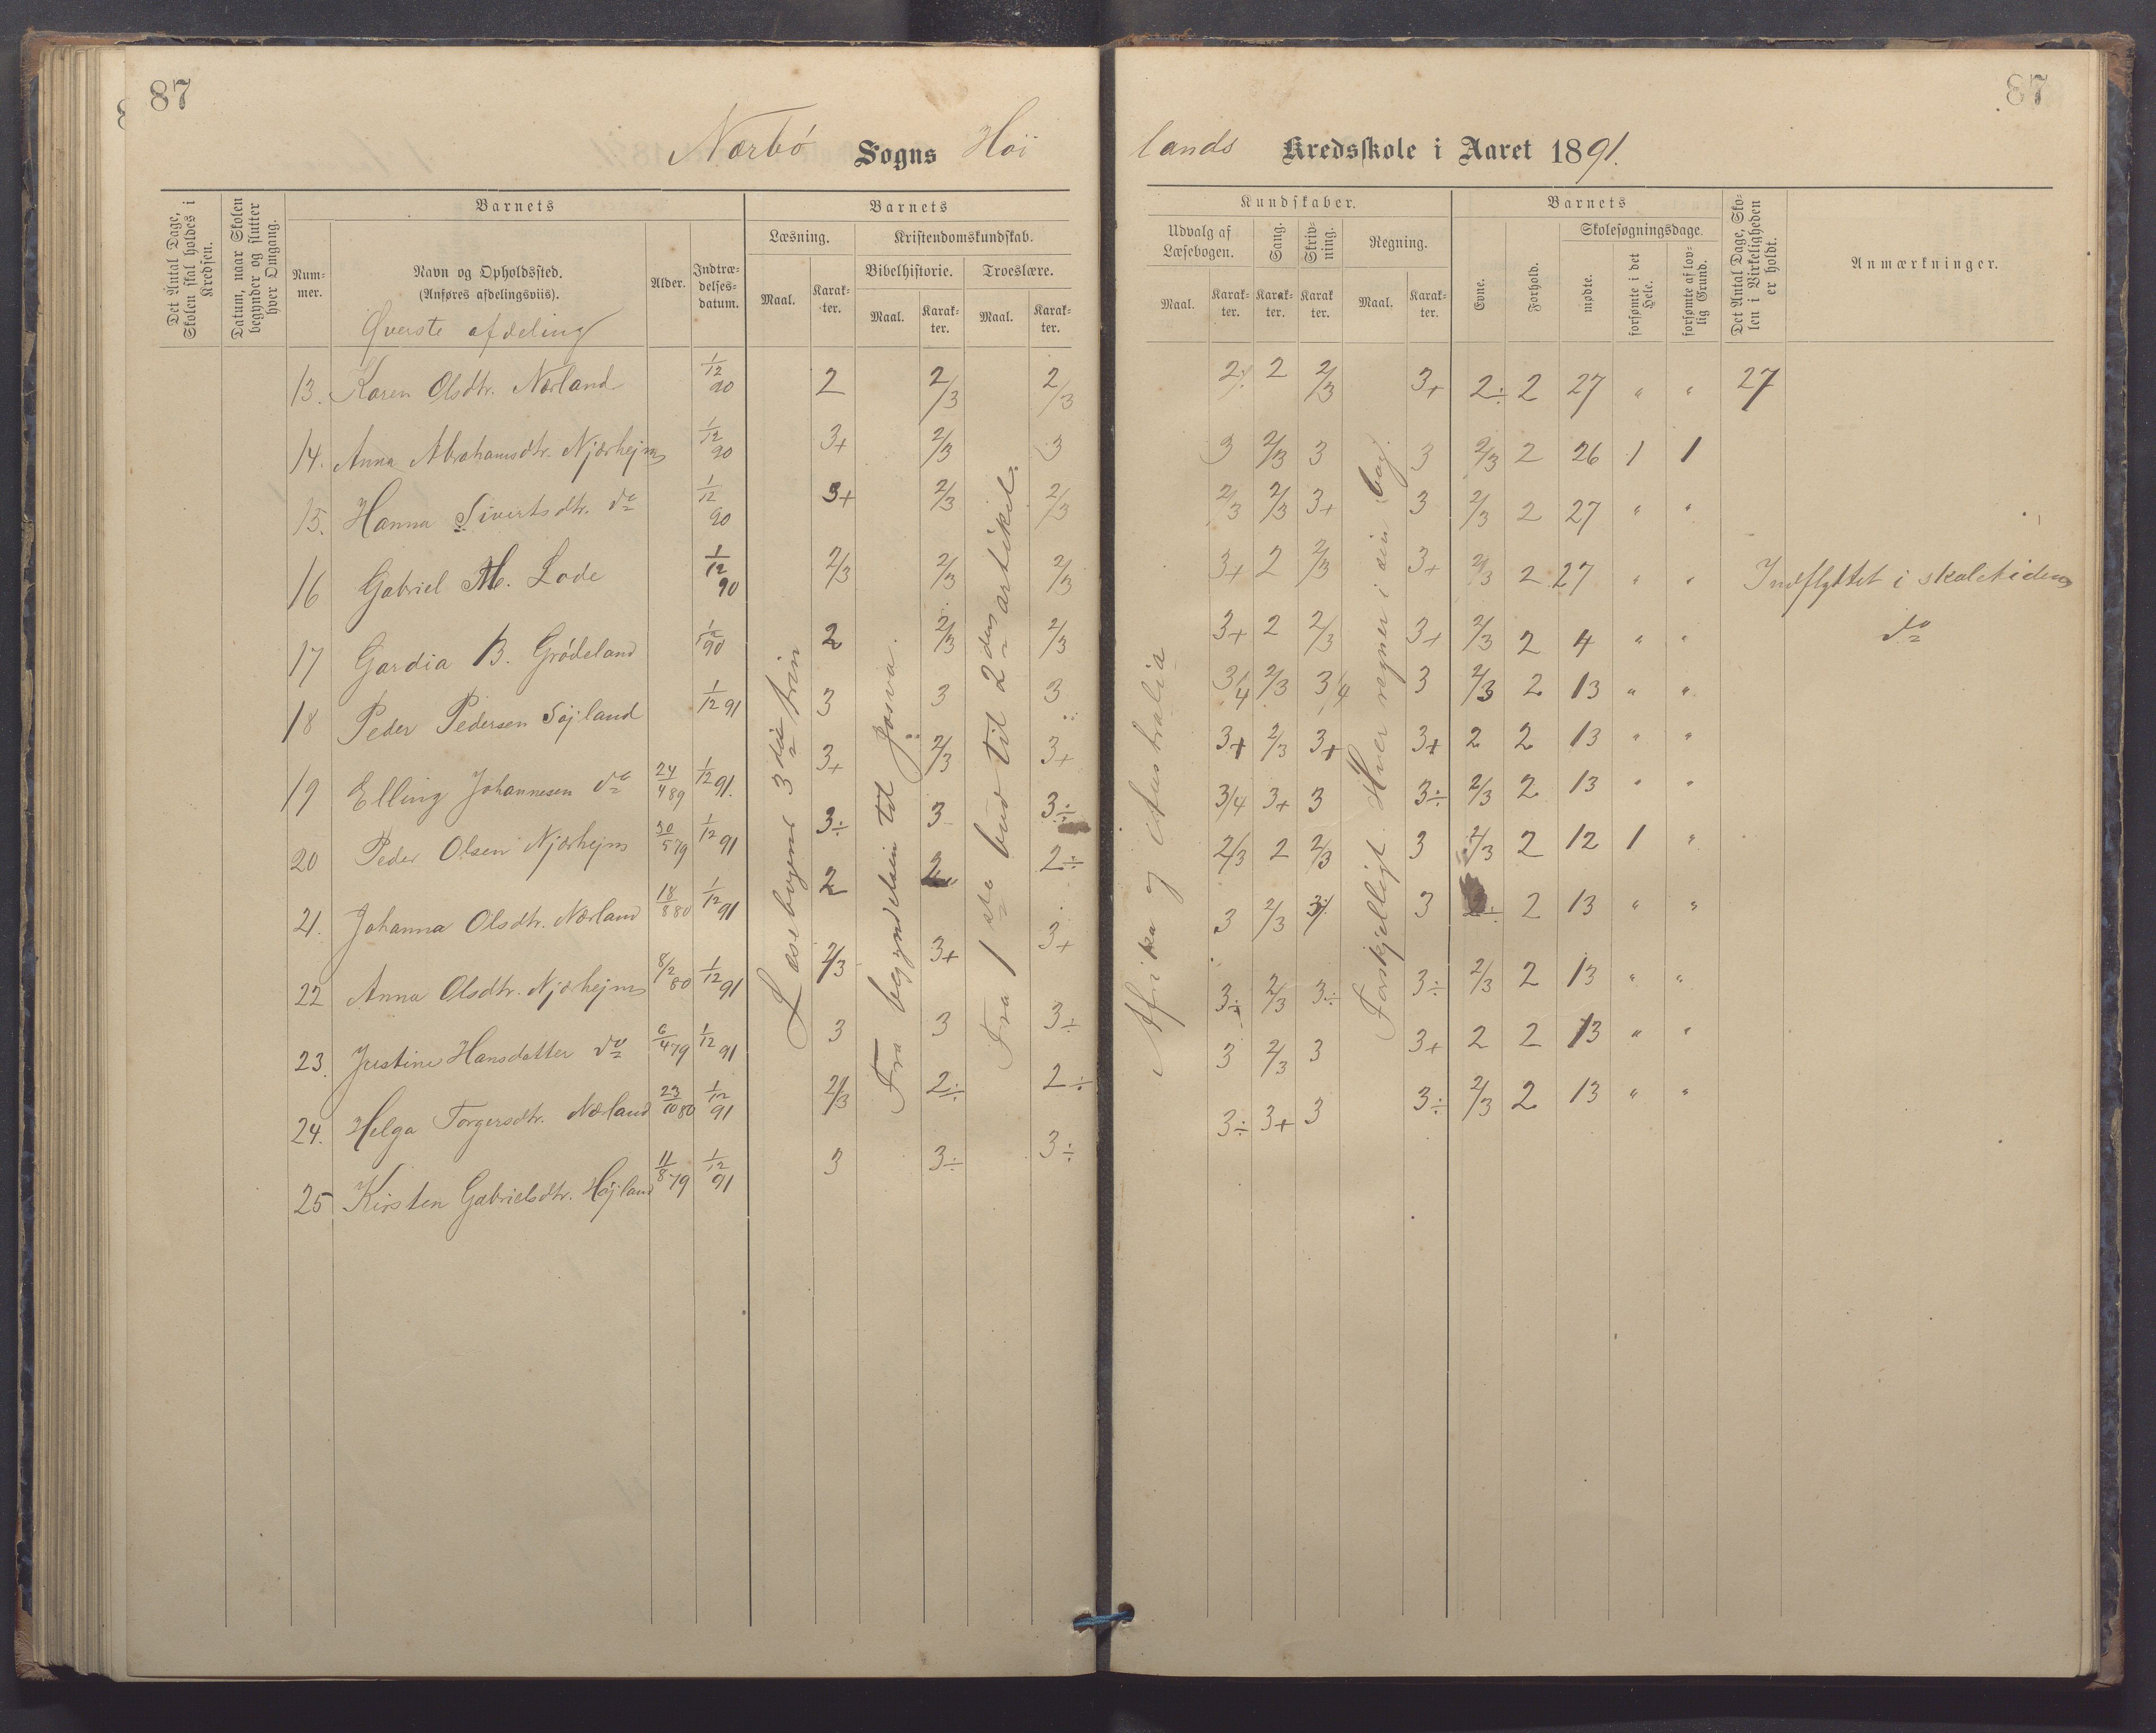 87
87
Nærbö Sogns Höi lands Kredsskole i Aaret 1891.
Det Antal Dage, Skolen skal holdes i Kredsen.
Datum, naar Skolen begynder og slutter hver Omgang.
Barnets
Nummer.
Navn og Opholdssted.
(Anføres afdelingsviis).
Alder.
Indtrædelses-datum.
Barnets
Læsning.
Maal.
Karakter.
Kristendomskundskab.
Bibelhistorie.
Maal.
Karakter.
Troeslære.
Maal.
Karakter.
Kundskaber.
Udvalg af Læsebogen.
Maal.
Karakter.
Sang.
Karakter.
Skrivning.
Karakter.
Regning.
Maal.
Karakter.
Barnets
Evne.
Forhold.
Skolesøgningsdage.
mødte.
forsømte i det Hele.
forsømte af lovlig Grund.
Det Antal Dage, Skolen i Virkeligheden er holdt.
Anmærkninger.
Øverste afdeling
13. Karen Olsdtr. Nærland 1/12 90 2 2/3 2/3 2÷ 2 2/3 3+ 2÷ 2 27 " " 27
14. Anna Abrahamsdtr. Njærhejm 1/12 90 3+ 2/3 3 3 2/3 3 3 2/3 2 26 1 1
15. Hanna Sivertsdtr. do 1/12 90 3+ 2/3 2/3 2/3 2/3 3+ 3 2/3 2 27 " "
16 Gabriel M. Lode 1/12 90 2/3 2/3 2/3 3+ 2 2/3 3+ 2/3 2 27 " " Indflyttet i skoletiden
17 Gardia B. Grödeland 90 2 2/3 2/3 3+ 2 2/3 3+ 2/3 2 4 " " do
18 Peder Pedersen Höjland 1/12 91 3 3 3 3/4 2/3 3/4 3 2/3 2 13 " "
19 Elling Johannesen do 24/4 89 1/12 91. 3+ 2/3 3+ 3+ 2/3 3+ 3+ 2 2 13 " "
20 Peder Olsen Njærhejm 30/5 79 1/12 91 3÷ 3 3÷ 3/4 3+ 3 3÷ 2/3 2 13 " "
21. Johanna Olsdtr. Nærland 18/8 80 1/12 91 2 2 2÷ 2/3 2 2/3 3 2/3 2 12 1 "
22 Anna Olsdtr. Njærhejm 8/2 80 1/12 91 2/3 3+ 3+ 3 2/3 3 3 2÷ 2 13 " "
23. Justine Hansdatter do 6/4 79 1/12 91 3 3 3÷ 3÷ 2/3 3÷ 3÷ 2/3 2 13 " "
24. Helga Torgersdtr. Nærland 23/10 80 1/12 91 2/3 2÷ 2÷ 3 2/3 3 3+ 2 2 13 " "
25 Kirsten Gabrielsdtr. Höjland 11/8 79 1/12 91 3 3÷ 3÷ 3÷ 3+ 3 3÷ 2/3 2 13 " "
Læsebogens 3die trin
Fra begyndelsen til Josva.
Fra 1ste bud til 2den artikel.
Afrika og Australia
Forskjelligt. Hver regner i sin bog.